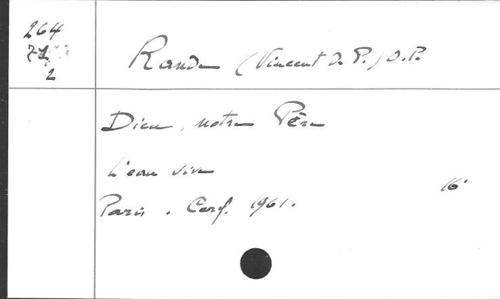 264
2
Rande (Vincent de P.) O.P.
Dieu, notre Père
L'eau vive
Paris. Cerf. 1961.
16°